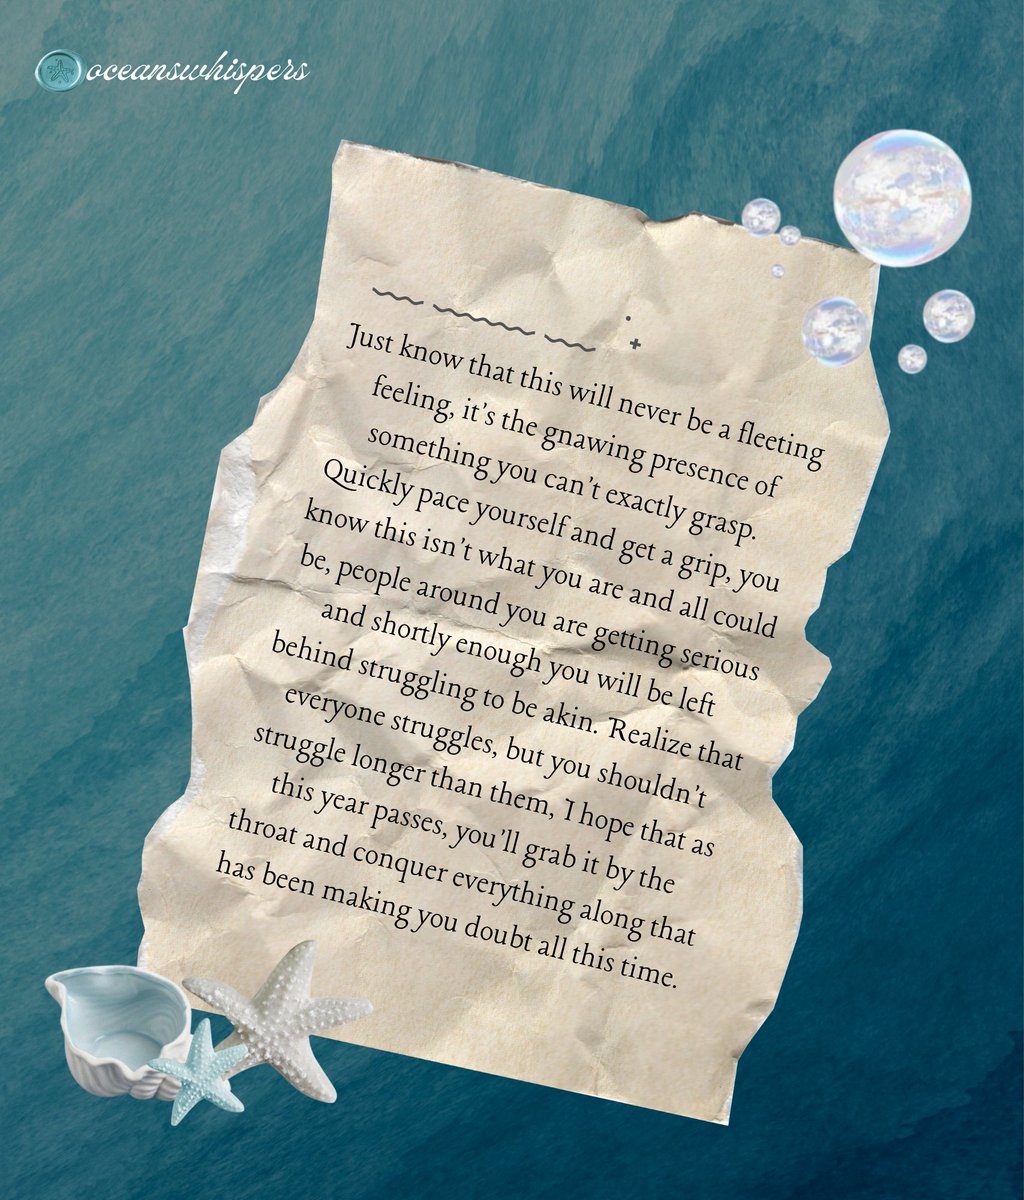 oceanswhispers
Just know that this will never be a fleeting
feeling, it's the gnawing presence of
something you can't exactly grasp.
Quickly pace yourself and get a grip, you
know this isn't what you are and all could
be, people around you are getting serious
and shortly enough you will be left
behind struggling to be akin. Realize that
everyone struggles, but you shouldn't
struggle longer than them, I hope that as
this year passes, you'll grab it by the
throat and conquer everything along that
has been making you doubt all this time.